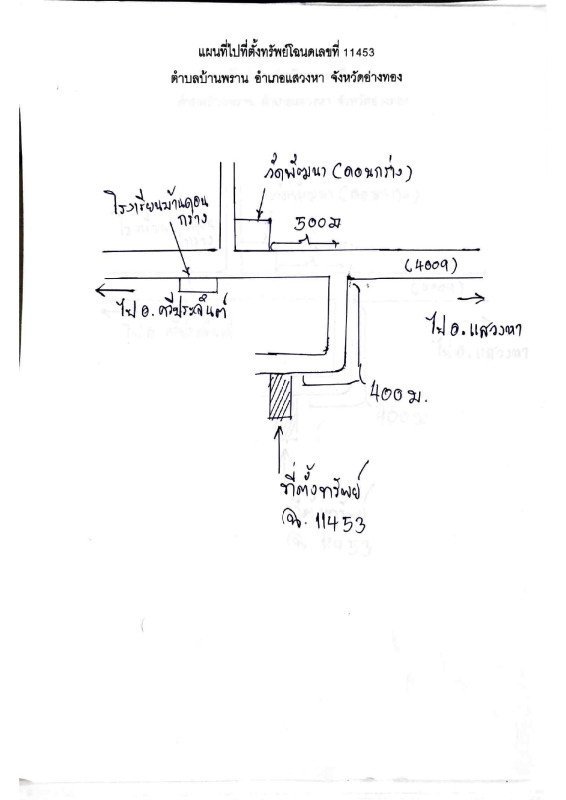 แผนที่ไปที่ตั้งทรัพย์โฉนดเลขที่ 11453
ตำบลบ้านพราน อำเภอแสวงหา จังหวัดอ่างทอง
วัดพัฒนา (ดอนกร่าง)
โรงเรียนบ้านดอน
กร่าง
500 ม
(4009)
ไป อ. ศรีประจันต์
ไป อ. แสวงหา
400 ม.
ที่ตั้งทรัพย์
ฉ. 11453